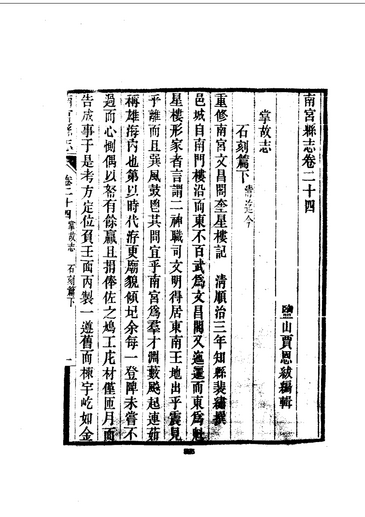 南宮縣志卷二十四
鹽山賈恩紱編輯
掌故志
石刻篇下 清迄今
重修南宮文昌閣奎星樓記 清順治三年知縣裴繡撰
邑城自南門樓沿而東不百武爲文昌閣又迤邐而東爲魁
星樓形家者言謂二神職司文明得居東南王地出乎震見
乎離而且巽風鼓鬯其間宜乎南宮爲羣才淵藪飈起連茹
稱雄海內也第以時代游更廟貌傾圮余每一登陴未嘗不
過而心惻偶以帑有餘羸且捐俸佐之鳩工庀材僅匝月而
告成事于是考方定位負壬面丙製一遵舊而棟宇屹如金
南宮縣志 卷二十四 掌故志 石刻篇下 一